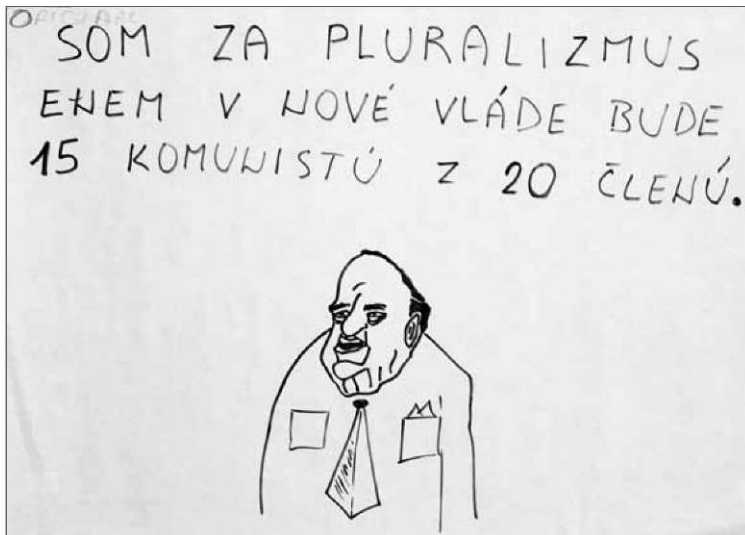 SOM ZA PLURALIZMUS
ENEM V NOVÉ VLÁDE BUDE
15 KOMUNISTŮ Z 20 ČLENŮ.